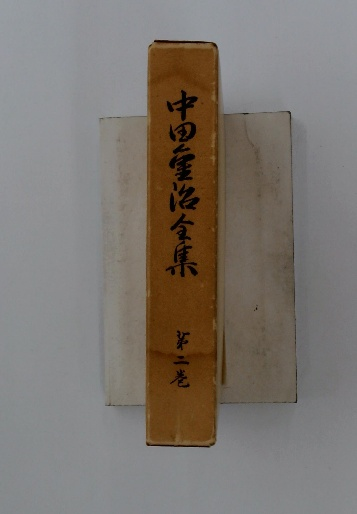 中田重治全集
第二巻